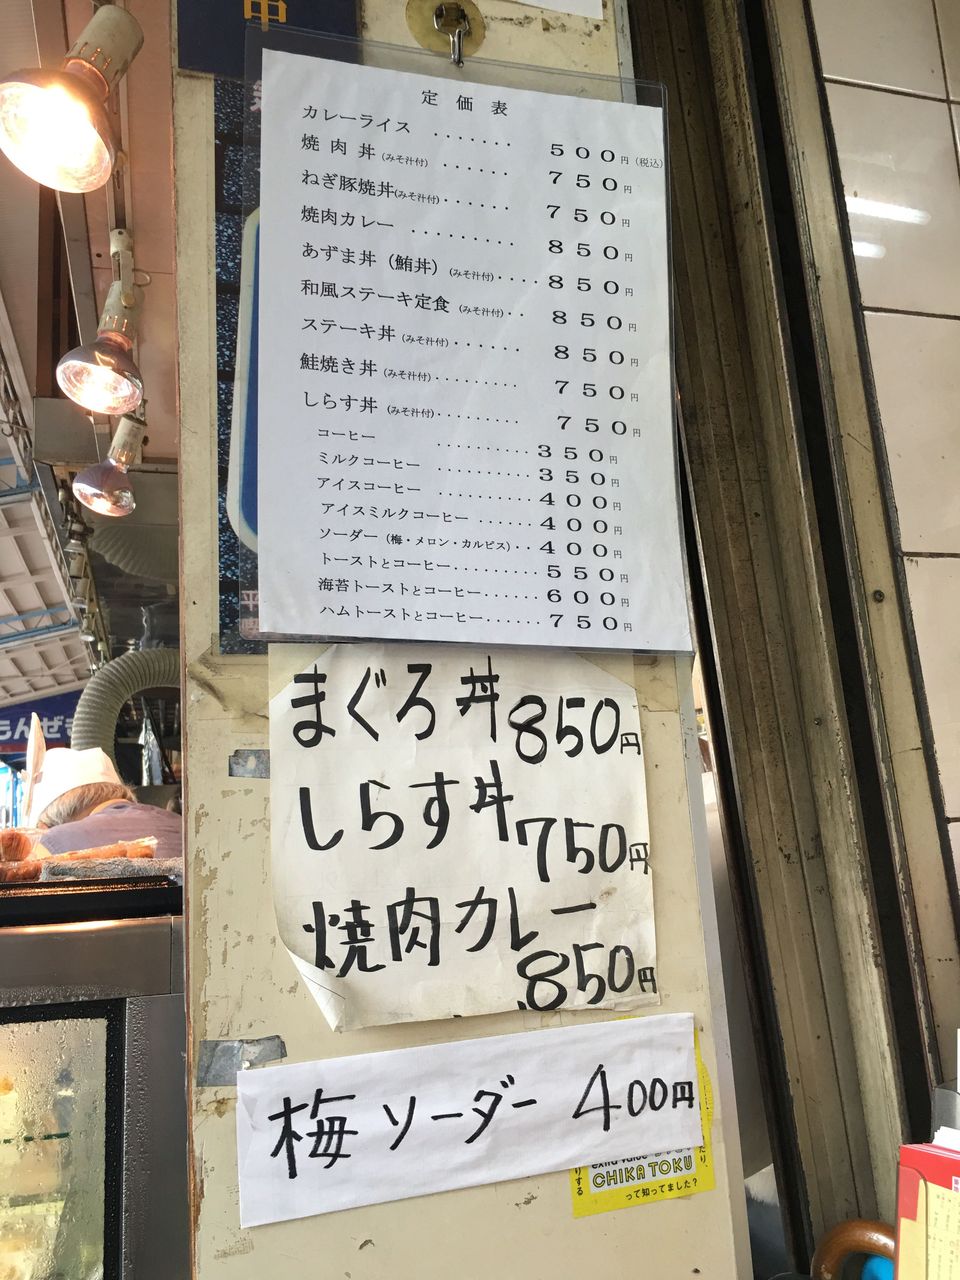 定 価 表
カレーライス ・・・・・・・ 500円(税込)
焼 肉 丼(みそ汁付) ・・・・・・ 750円
ねぎ豚焼丼(みそ汁付)・・・・・・ 750円
焼肉カレー ・・・・・・・・・ 850円
あずま丼(鮪丼)(みそ汁付)・・・・850円
和風ステーキ定食 (みそ汁付)・・ 850円
ステーキ丼 (みそ汁付)・・・・・・ 850円
鮭焼き丼 (みそ汁付)・・・・・・・・ 750円
しらす丼 (みそ汁付)・・・・・・・・ 750円
コーヒー ・・・・・・・・・350円
ミルクコーヒー ・・・・・・・・・350円
アイスコーヒー ・・・・・・・・・400円
アイスミルクコーヒー ・・・・・・400円
ソーダー(梅・メロン・カルピス)・・400円
トーストとコーヒー・・・・・・・・550円
海苔トーストとコーヒー・・・・・・600円
ハムトーストとコーヒー・・・・・・750円
まぐろ丼850円
しらす丼750円
焼肉カレー
850円
梅ソーダー 400円
CHIKA TOKU
って知ってました?